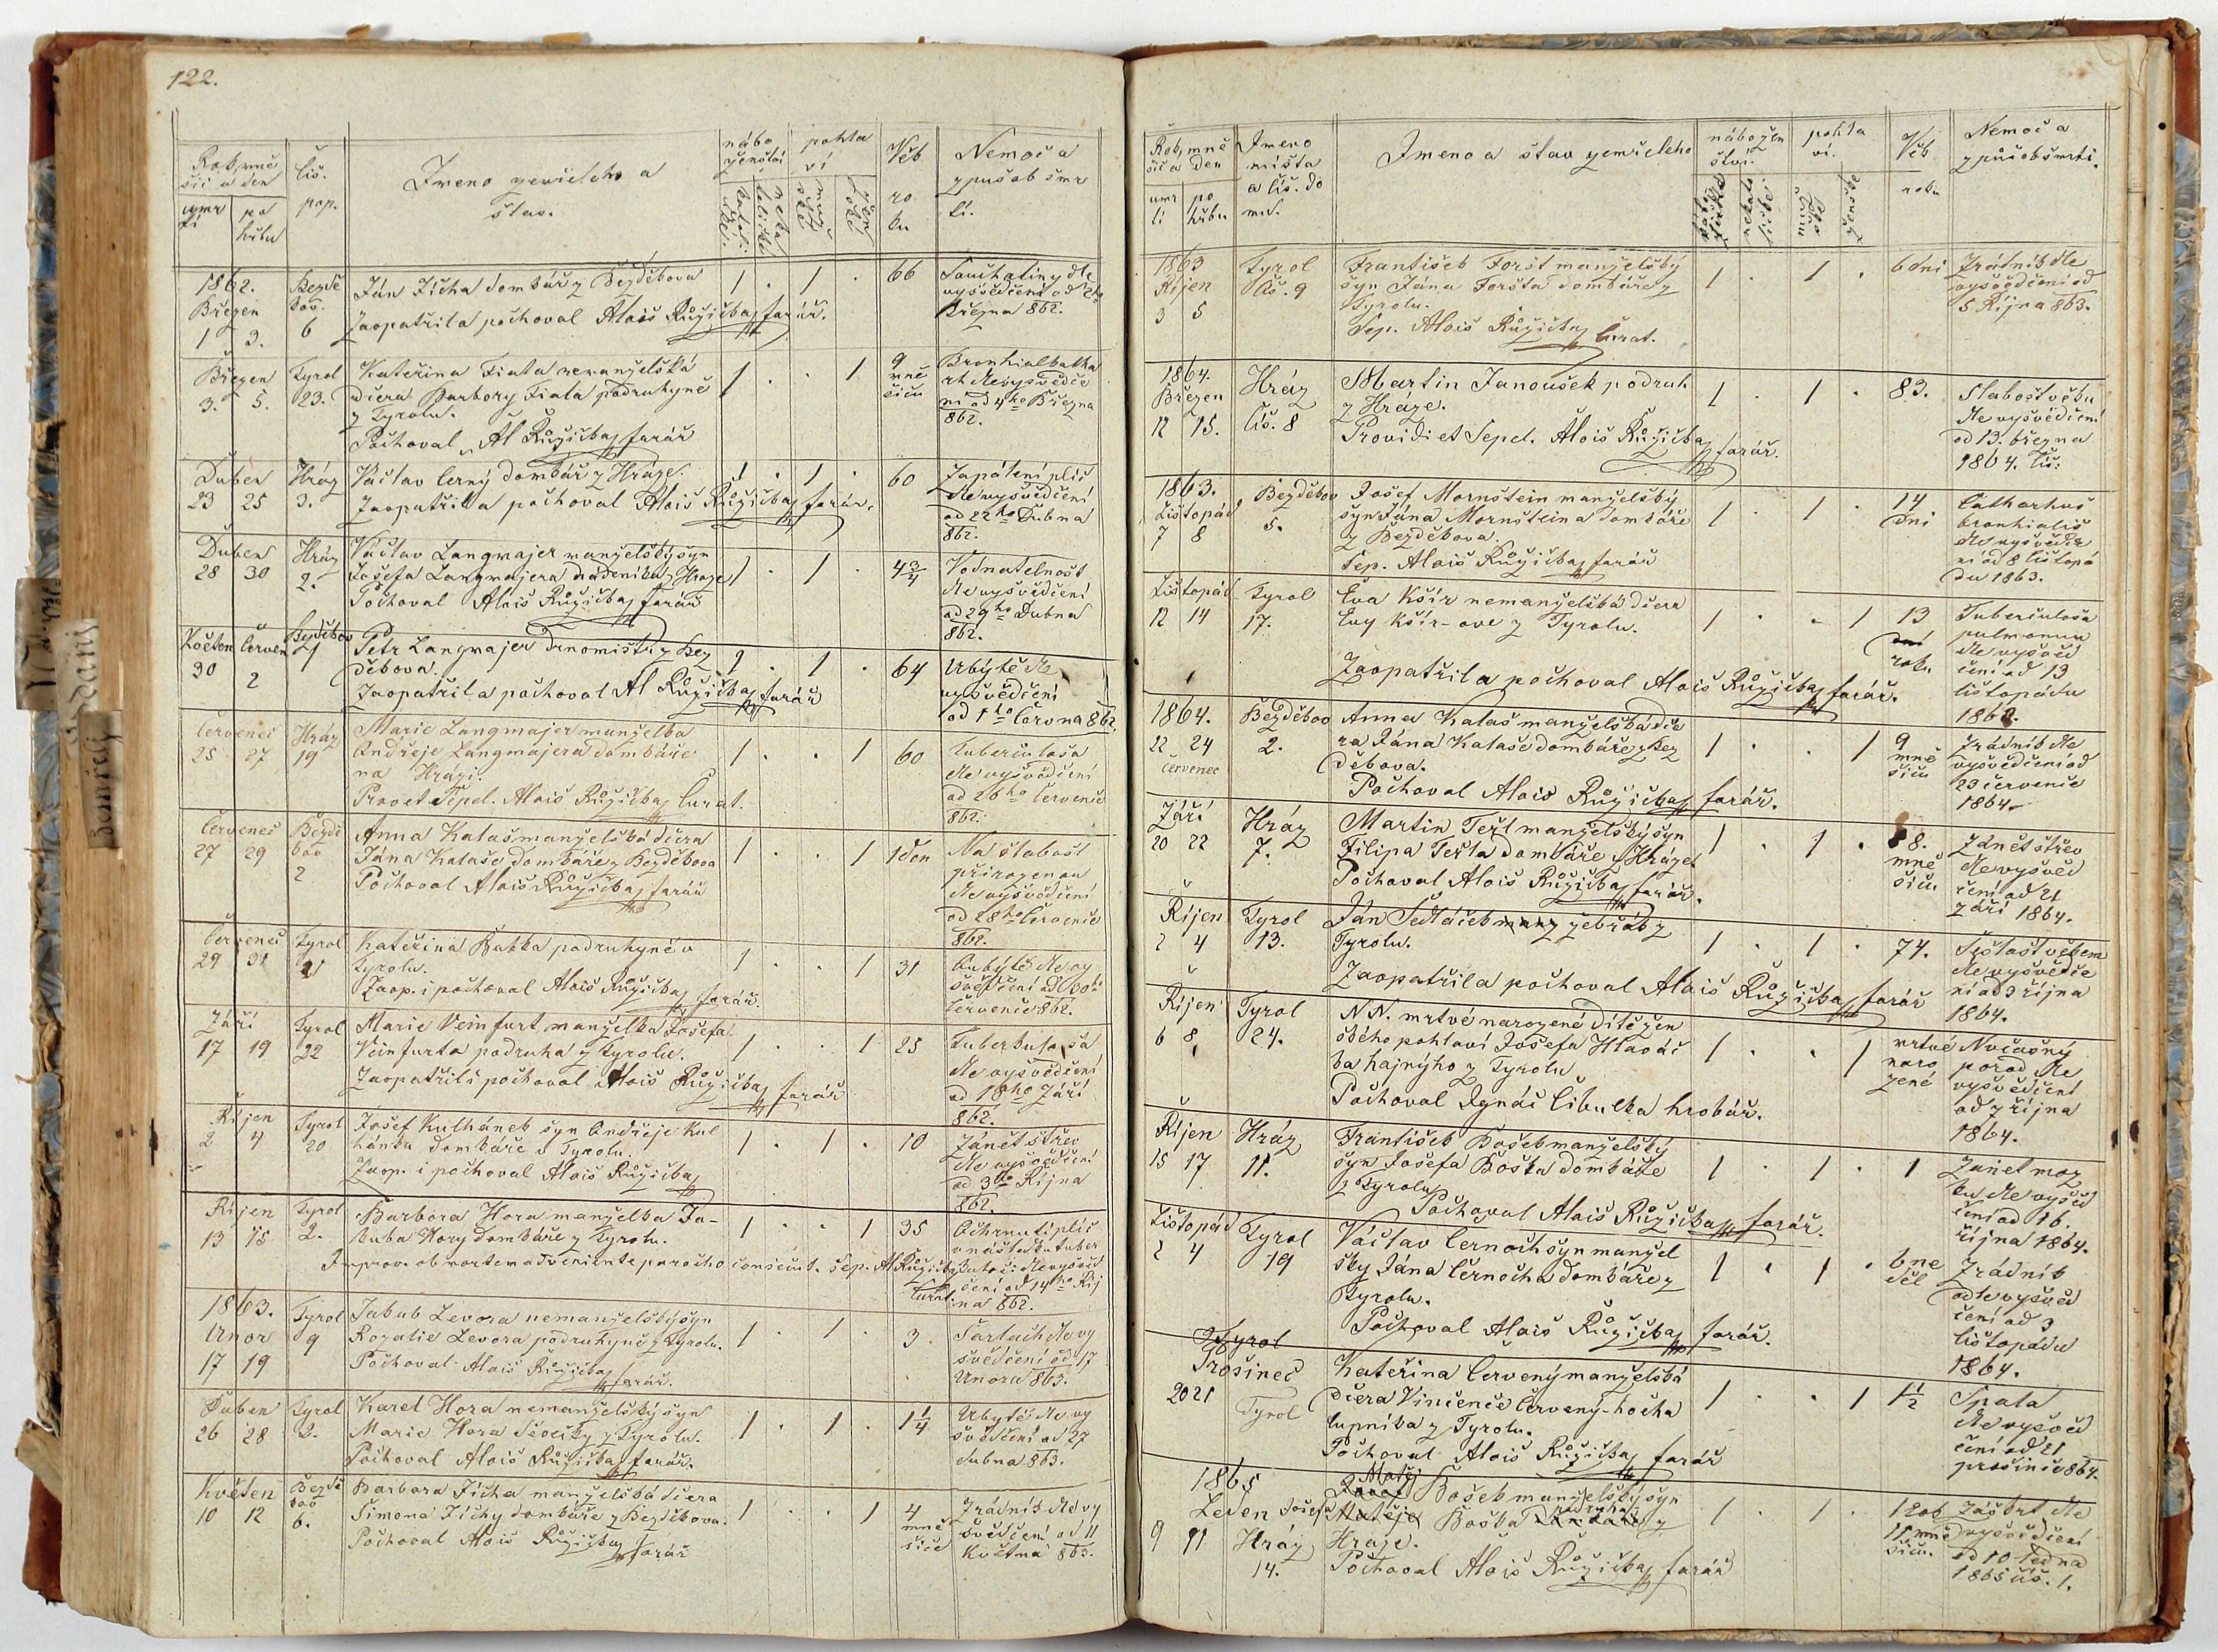 122.
Rok, mně
síc a den
umř
tí
po
hřbu
čís.
pop.
Jmeno zemřelého a
stav.
nábo
ženství
katoli
cké
neka
tolické
pohla
ví
muž
ské
žen
ské
Věk
ro
ku
Nemoc a
způsob smr
ti.
1862.
Březen
1 3.
Bezdě
kov.
6
Ján Jícha domkář z Bezděkova
Zaopatřil a pochoval Alois Růžička farář.
1 . 1 .
66
Souchotiny dle
vysvědčení od 2ho
Března 862.
Březen
3. 5.
Tyrol
23.
Kateřina Fiala nemanželská
dcera Barbory Fiala podruhyně
z Tyrolu.
Pochoval Al Růžička farář
1 . . 1
9
mně
síců
Bronhialkatha
rh dle vysvědče
ní od 4ho Března
862.
Duben
23 25
Hráz
3.
Václav Černý domkář z Hráze.
Zaopatřil a pochoval Alois Růžička farář.
1 . 1 .
60
Zapálení plic
dle vysvědčení
od 22ho Dubna
862.
Duben
28 30
Hráz
2.
Václav Langmajer manželský syn
Josefa Langmajera nádeníka z Hráze
Pochoval Alois Růžička farář
1 . 1 .
4 3/4
Vodnatelnost
dle vysvědčení
od 29ho Dubna
862.
Květen Červen
30 2
Bezděkov
21
Petr Langmajer drnomistr z Bez
děkova.
Zaopatřil a pochoval Al Růžička farář
1 . 1 .
64
Ubytě dle
vysvědčení
od 1ho Června 862.
Červenec
25 27
Hráz
19
Marie Langmajer manželka
Andřeje Langmajera domkáře
na Hrázi.
Prov et Sepel. Alois Růžička Curat.
1 . . 1
60
Tuberculosa
dle vysvědčení
od 26ho Července
862.
Červenec
27 29
Bezdě
kov
2
Anna Kalaš manželská dcera
Jána Kalaše domkáře z Bezděkova
Pochoval Alois Růžička farář
1 . . 1
1 den
Na slabost
přirozenou
dle vysvědčení
od 28ho Července
862.
Červenec
29 31
Tyrol
21
Kateřina Bukka podruhyně v
Tyrolu.
Zaop. i pochoval Alois Růžička farář.
1 . . 1
31
Oubytě dle vy
svědčení od 30ho
Července 862.
Září
17 19
Tyrol
22
Marie Veinfurt manželka Josefa
Veinfurta podruha z Tyrolu.
Zaopatřil i pochoval Alois Růžička farář
1 . . 1
25
Tuberkulosa
dle vysvědčení
od 18ho Září
862.
Říjen
2. 4
Tyrol
20
Josef Kulhánek syn Andřeje Kul
hánka domkáře v Tyrolu.
Zaop. i pochoval Alois Růžička
1 . 1 .
10
Zánět střev
dle vysvědčení
od 3ho Října
862.
Říjen
13 15
Tyrol
2.
Barbora Hora manželka Ja-
kuba Hory domkáře z Tyrolu.
Improv. ob mortem advenienteparocho consecut. Sep. Al Růžička
Curat.
1 . . 1
35
Ochrnutí plic
v následku tuber
kulosi: dle vysvěd
čení od 14ho Říj
na 862.
1863.
Unor
17 19
Tyrol
9
Jakub Levora nemanželský syn
Rozalie Levora podruhyně z Tyrolu.
Pochoval Alois Růžička farář.
1 . 1 .
3.
Šarlach dle vy
svědčení od 17
Unora 863.
Duben
26 28
Tyrol
2.
Karel Hora nemanželský syn
Marie Hora děvečky z Tyrolu.
Pochoval Alois Růžička farář.
1 . 1 .
1 1/4
Ubytě dle vy
svědčení od 27
dubna 863.
Květen
10 12
Bezdě
kov
6.
Barbora Jícha manželská dcera
Šimona Jíchy domkáře z Bezděkova.
Pochoval Alois Růžička farář
1 . . 1
4
mně
síce
Zrádník dle vy
svědčení od 11
Května 863.
Rok, mně
síc a den
umř
tí
po
hřbu
Jmeno
místa
a čís. do
mu.
Jmeno a stav zemřelého
nábožen
ství.
kato
lické
nekato
lické
pohla
ví.
muž
ské
ženské
Věk
roku
Nemoc a
způsob smrti.
1863
Říjen
3 5
Tyrol
čís. 9
František Foršt manželský
syn Jána Foršta domkáře z
Tyrolu.
Sep. Alois Růžička Curat.
1 . 1 .
6 dní
Zrádník dle
vysvědčení od
5 Října 863.
1864.
Březen
12 15.
Hráz
čís. 8
Martin Janoušek podruh
z Hráze.
Providi et Sepel. Alois Růžička farář.
1 . 1 .
83.
Slabost věku
dle vysvědčení
od 13. března
1864. čís:
1863.
Listopád
7 8
Bezděkov
5.
Josef Mornštein manželský
syn Jána Mornšteina domkáře
z Bezděkova.
Sep. Alois Růžička farář
1 . 1 .
14
dní
Catharhus
bronhialis
dle vysvědče
ní od 8 listopá
du 1863.
Listopád
12 14
Tyrol
17.
Eva Kšír nemanželská dcera
Evy Kšír-ove z Tyrolu.
Zaopatřil a pochoval Alois Růžička farář.
1 . . 1
13
dní
roku
Tuberculosa
pulmonum
dle vysvěd
čení od 13
listopádu
1863.
1864.
22 24
Červenec
Bezděkov
2.
Anna Kalaš manželská dce
ra Jána Kalaše domkáře z Bez
děkova.
Pochoval Alois Růžička farář.
1 . . 1
9
mně
síců
Zrádník dle
vysvědčení od
23 července
1864.
Září
20 22
Hráz
7.
Martin Teřl manželský syn
Filipa Teřla domkáře z Hráze
Pochoval Alois Růžička farář.
1 . 1 .
8.
mně
síců
Zánět střev
dle vysvěd
čení od 21
září 1864.
Říjen
2 4
Tyrol
13.
Ján Sedláček žebrák z
Tyrolu.
Zaopatřil a pochoval Alois Růžička farář
1 . 1 .
74.
Sešlost věkem
dle vysvědče
ní od 3 října
1864.
Říjen
6 8
Tyrol
24.
N N. mrtvé narozené dítě žen
ského pohlaví Josefa Hlaváč
ka hajnýho z Tyrolu
Pochoval Ignác Cibulka hrobář.
1 . . 1
mrtvé
naro
zené
Nočasný
porod dle
vysvědčení
od 7 října
1864.
Říjen
15 17
Hráz
11.
František Bošek manželský
syn Josefa Boška domkáře
z Tyrolu
Pochoval Alois Růžička farář.
1 . 1 .
1
Zánět moz
ku dle vysvěd
čení od 16.
října 1864.
Listopád
2 4
Tyrol
19
Václav Černoch syn manžel
ský Jána Černocha domkáře z
Tyrolu.
Pochoval Alois Růžička farář.
1 . 1 .
6 ne
děl
Zrádník
odle vysvěd
čení od 3
listopádu
1864.
Tyrol
Prosinec
20 21
Tyrol
Kateřina Červený manželská
dcera Vincence Červený-hocha
lupníka z Tyrolu.
Pochoval Alois Růžička farář
1 . . 1
1 1/2
Spala
dle vysvěd
čení od 21
prosince 864.
1865
Leden
9 11
Hráz
14.
Matěj
Bošek manželský syn
Josefa Matěje Boška podruha z
Hráze.
Pochoval Alois Růžička farář
1 . 1 .
1 rok
11 mně
síců.
Záškrt dle
vysvědčení
od 10 ledna
1865 čís. 1.